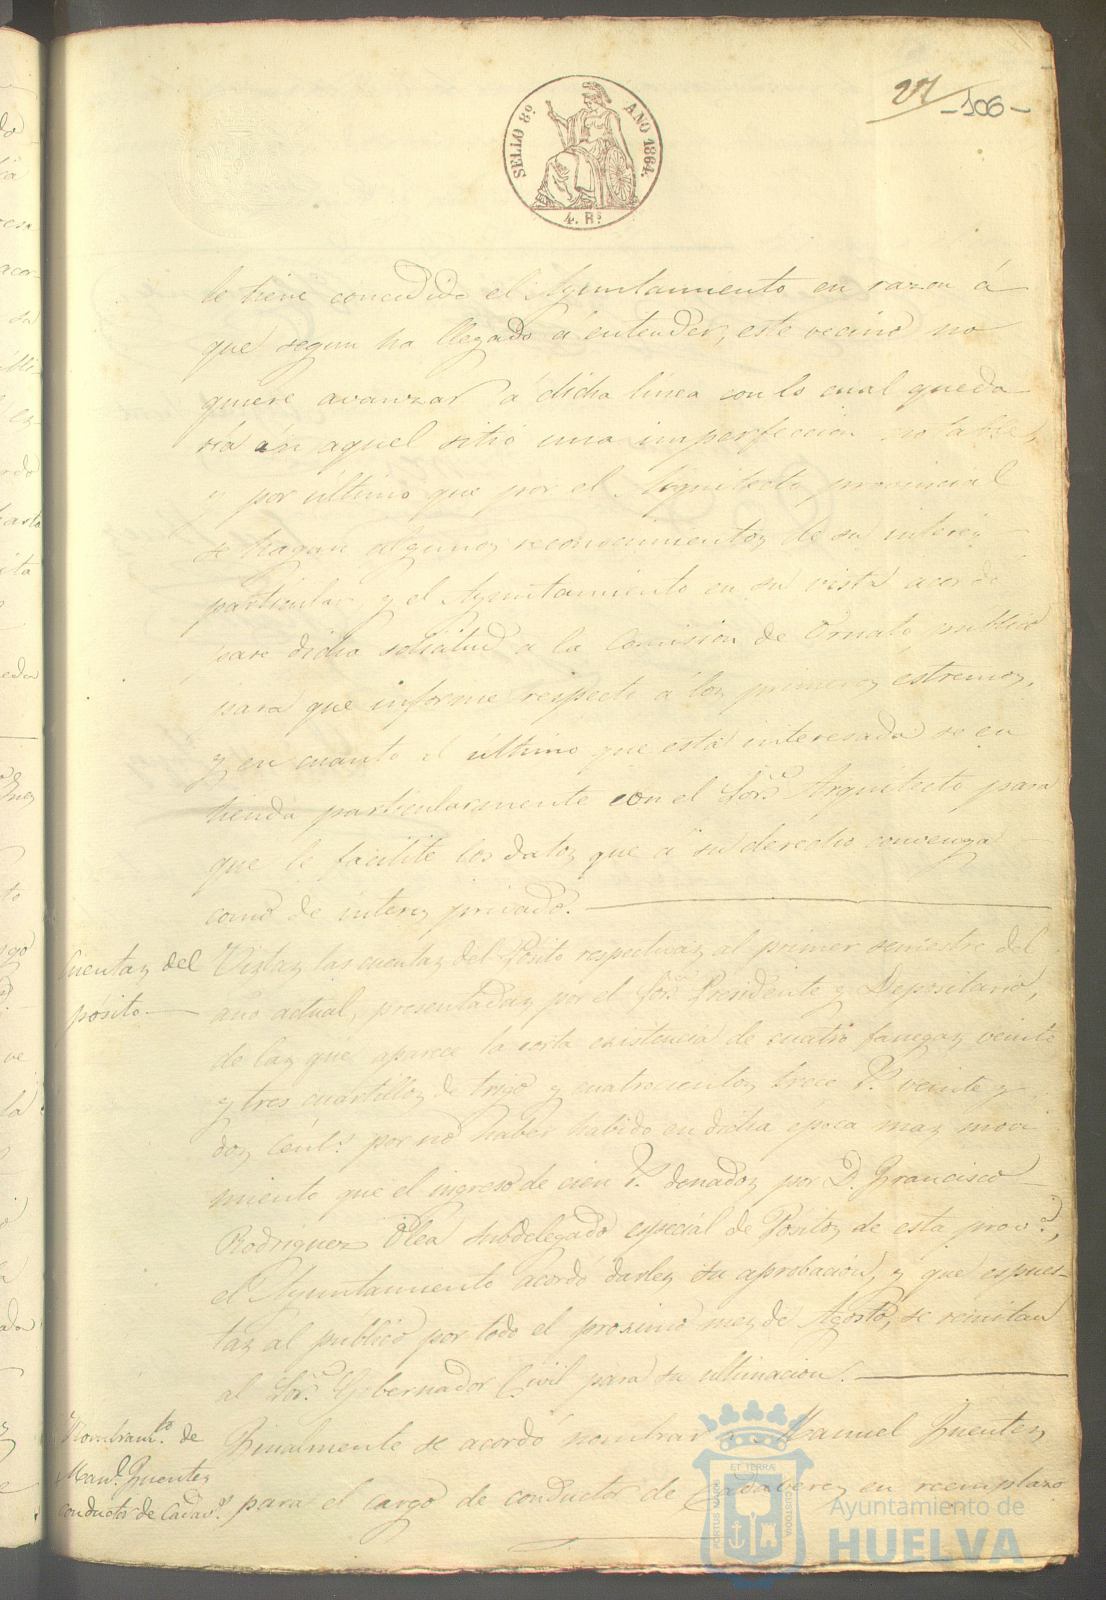 27
-106-
SELLO 8º AÑO 1864.
4. Rs
le tiene concedido el Ayuntamiento en razon á
que segun ha llegado á entender, este vecino no
quiere avanzar á dicha linea con lo cual queda
ria en aquel sitio una imperfeccion notable,
y por último que por el Arquitecto provincial
se hagan algunos reconocimientos de su interes
particular, y el Ayuntamiento en su vista acordo
pase dicha solicitud a la Comision de Ornato publico
para que informe respecto á los primeros estremos,
y en cuanto al último que está interesada se en
tienda particularmente con el Sor. Arquitecto para
que le facilite los datos que á su derecho convenga
como de interes privado.
Cuentas del
pósito
Vistas las cuentas del Pósito respectivas al primer semestre del
año actual, presentadas por el Sor. Presidente y Depositario,
de las que aparece la corta existencia de cuatro fanegas veinte
y tres cuartillos de trigo y cuatrocientos trece rs. veinte y
dos cents. por no haber habido en dicha época mas movi
miento que el ingreso de cien rs. donados por D. Francisco
Rodriguez Olea Subdelegado especial de Pósitos de esta prova.,
el Ayuntamiento acordó darles su aprobacion, y que espues-
tas al publico por todo el procsimo mes de Agosto, se remitan
al Sor. Gobernador Civil para su ultimacion.
Nombramto. de
Manl. Fuentes
conductor de Cadavs.
Finalmente se acordó nombrar a Manuel Fuentes
para el cargo de conductor de Cadaveres en reemplazo
PORTUS MARIS ET TERRÆ CUSTODIA
Ayuntamiento de
HUELVA